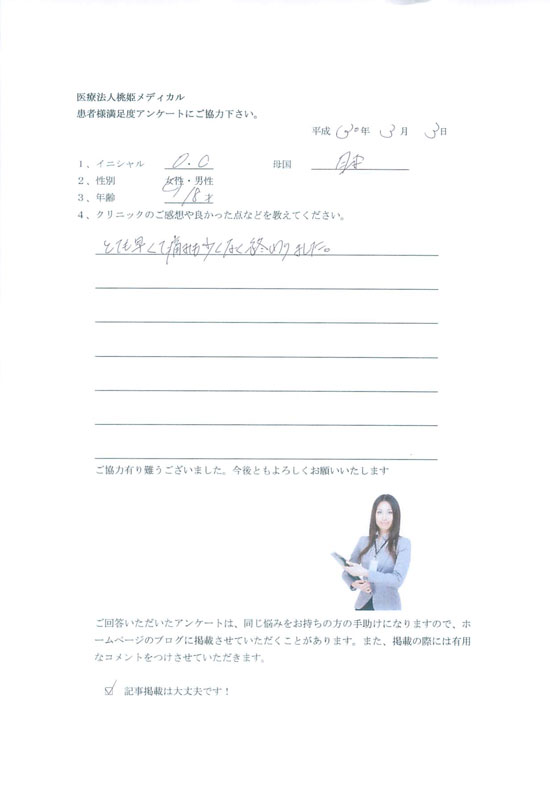 医療法人桃姫メディカル
患者様満足度アンケートにご協力下さい。
平成 30年 3月 3日
1、イニシャル O.O 母国 日本
2、性別 女性・男性
3、年齢 18才
4、クリニックのご感想や良かった点などを教えてください。
とても早くて痛みも少くなく終わりました。
ご協力有り難うございました。今後ともよろしくお願いいたします
ご回答いただいたアンケートは、同じ悩みをお持ちの方の手助けになりますので、ホ
ームページのブログに掲載させていただくことがあります。また、掲載の際には有用
なコメントをつけさせていただきます。
☑ 記事掲載は大丈夫です！